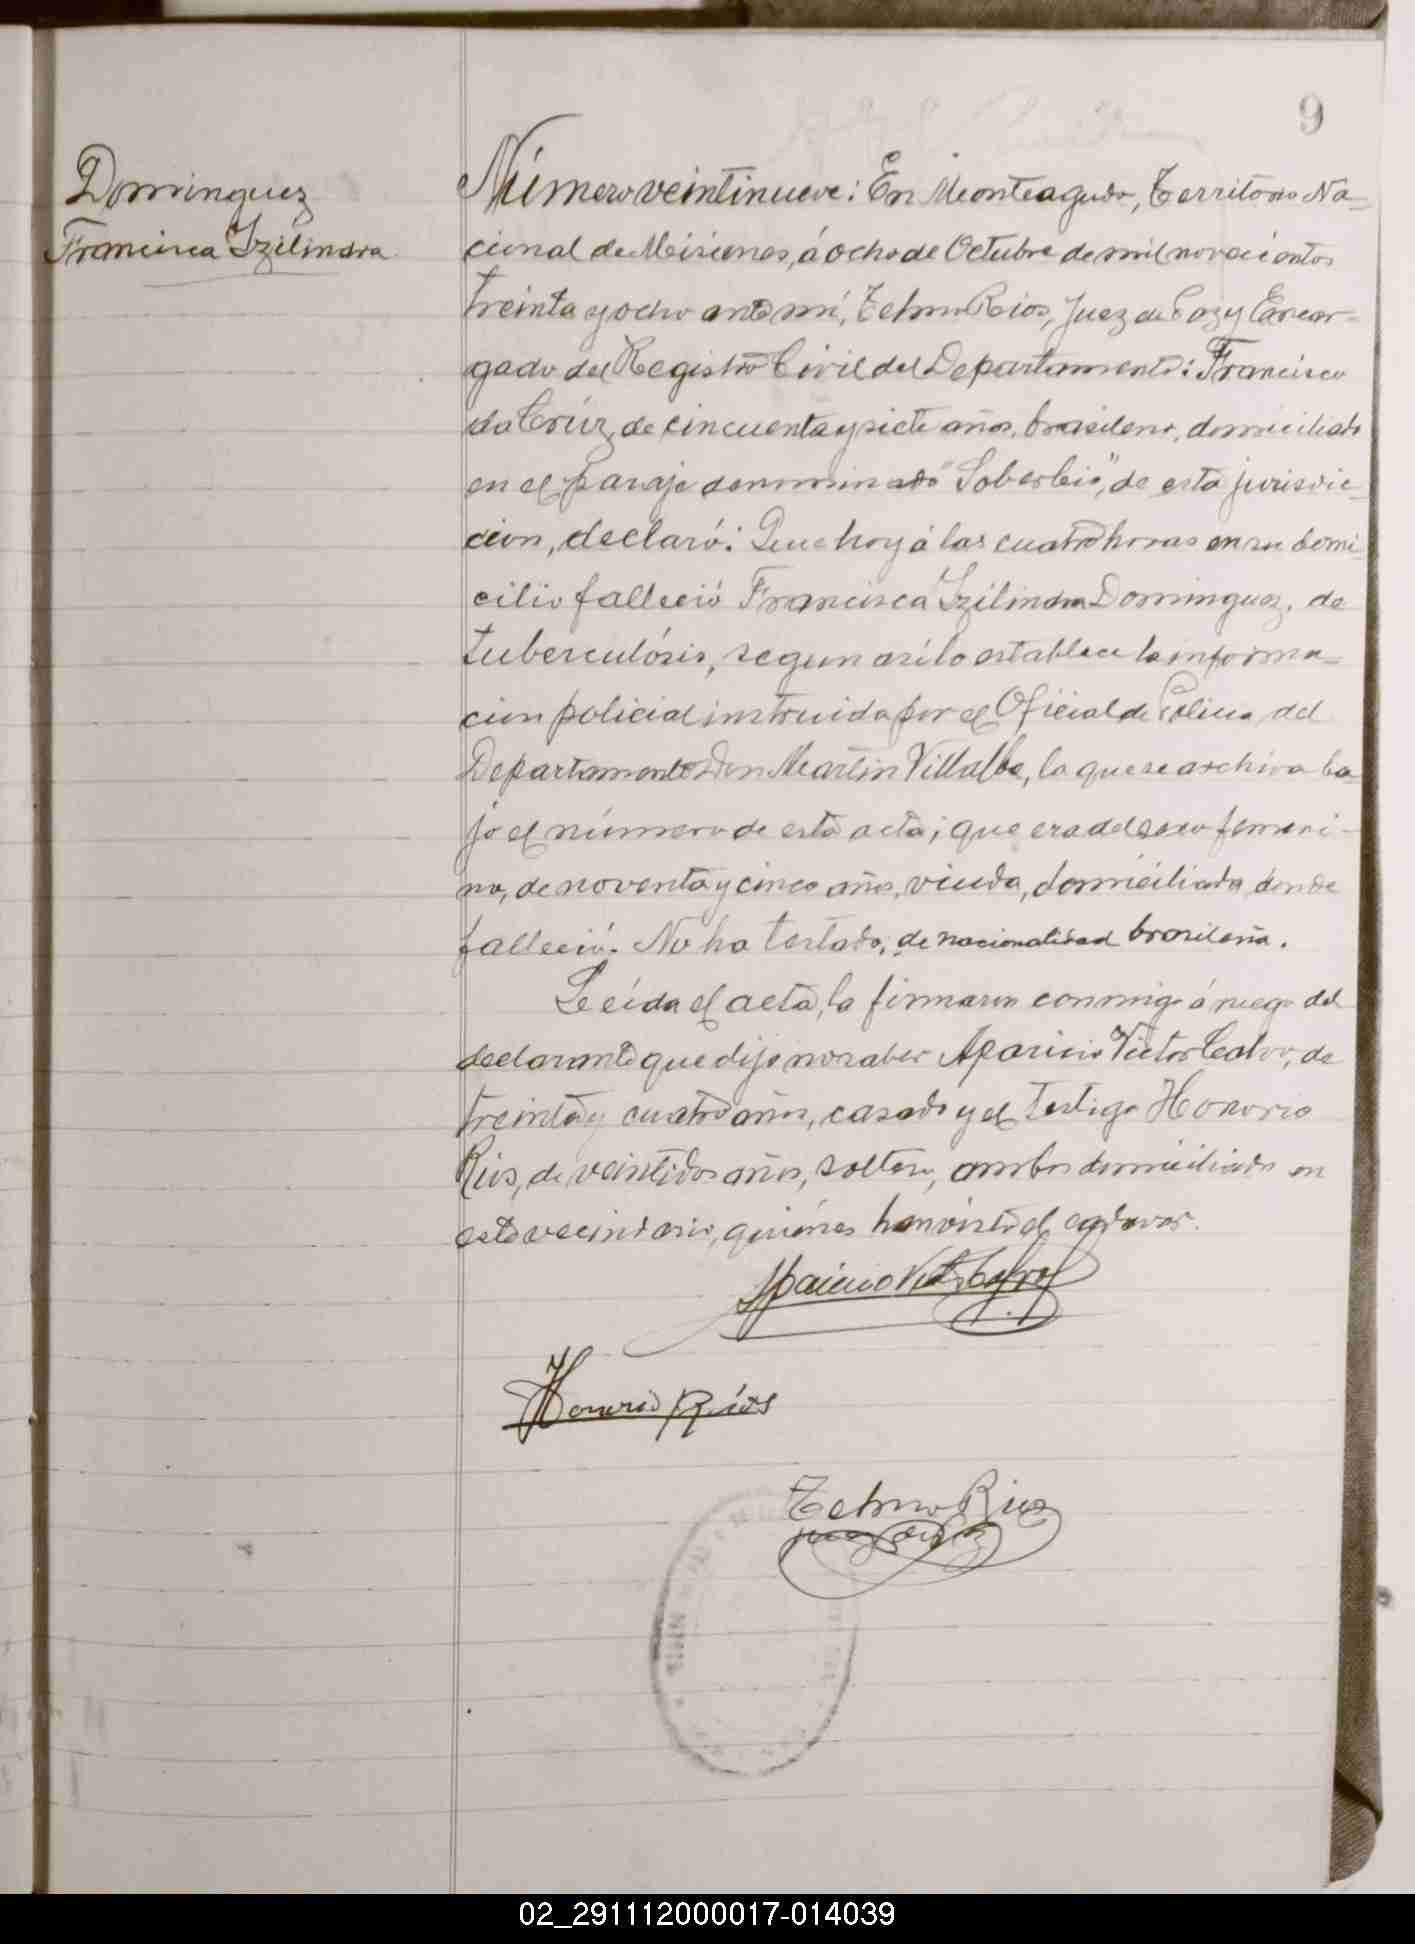 9
Dominguez
Francisca Izilindra
Número veintinueve: En Monteagudo, Territorio Na-
cional de Misiones, á ocho de Octubre de mil novecientos
treinta y ocho ante mí, Telmo Rios, Juez de Paz y Encar-
gado del Registro Civil del Departamento: Francisco
da Crúz, de cincuenta y siete años, brasilero, domiciliado
en el paraje denominado "Soberbio", de esta jurisdic-
cion, declaró: Que hoy á las cuatro horas en su domi-
cilio falleció Francisca Izilindra Dominguez, de
tuberculósis, segun asi lo establece la informa-
cion policial instruida por el Oficial de Policia del
Departamento Don Martin Villalba, la que se archiva ba-
jo el número de esta acta; que era del sexo femeni-
no, de noventa y cinco años, viuda, domiciliada donde
falleció. No ha testado, de nacionalidad brasileña.
Leída el acta, la firmaron conmigo á ruego del
declarante que dijo no saber Aparicio Victor Calvo, de
treinta y cuatro años, casado y el testigo Honorio
Rios, de veintidos años, soltero, ambos domiciliado en
este vecindario, quiénes han visto el cadaver.
Honorio Ríos
Telmo Rios
juez de Paz
02_291112000017-014039